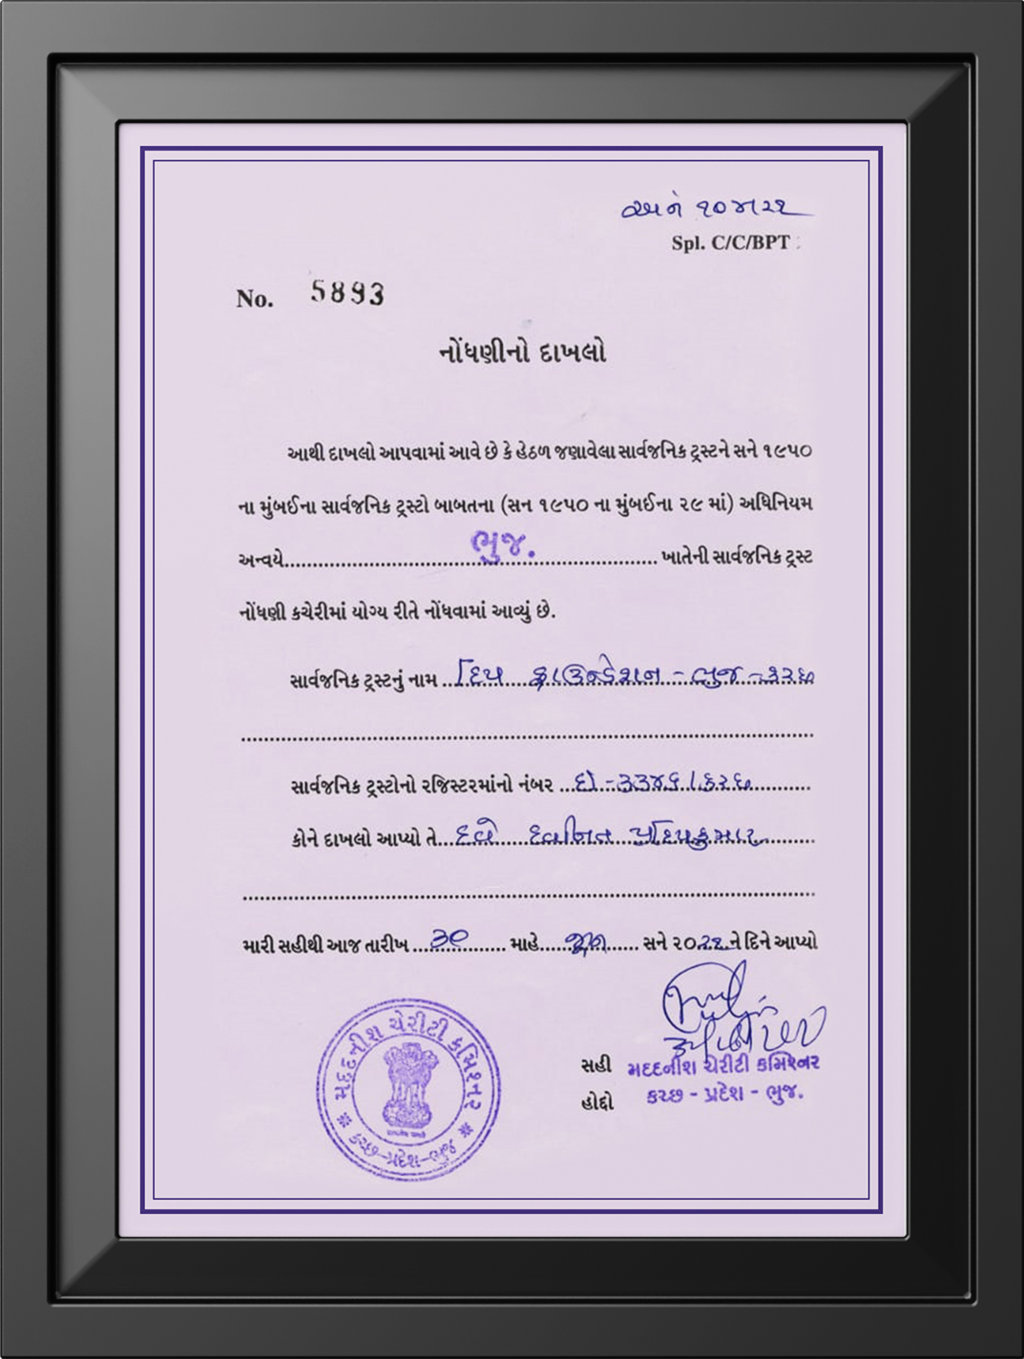 Spl. C/C/BPT
No. 5893
નોંધણીનો દાખલો
આથી દાખલો આપવામાં આવે છે કે હેઠળ જણાવેલા સાર્વજનિક ટ્રસ્ટને સને ૧૯૫૦
ના મુંબઈના સાર્વજનિક ટ્રસ્ટો બાબતના (સન ૧૯૫૦ ના મુંબઈના ૨૯ માં) અધિનિયમ
અન્વયે ભુજ. ખાતેની સાર્વજનિક ટ્રસ્ટ
નોંધણી કચેરીમાં યોગ્ય રીતે નોંધવામાં આવ્યું છે.
સાર્વજનિક ટ્રસ્ટનું નામ દિપ ફાઉન્ડેશન - ભુજ - કચ્છ
સાર્વજનિક ટ્રસ્ટોનો રજિસ્ટરમાંનો નંબર
કોને દાખલો આપ્યો તે દવે પ્રદિપકુમાર
મારી સહીથી આજ તારીખ ૩૦ માહે જુન સને ૨૦૨૧ ને દિને આપ્યો
સહી મદદનીશ ચેરીટી કમિશ્નર
હોદ્દો કચ્છ - પ્રદેશ - ભુજ.
મદદનીશ ચેરીટી કમિશ્નર
કચ્છ-પ્રદેશ-ભુજ